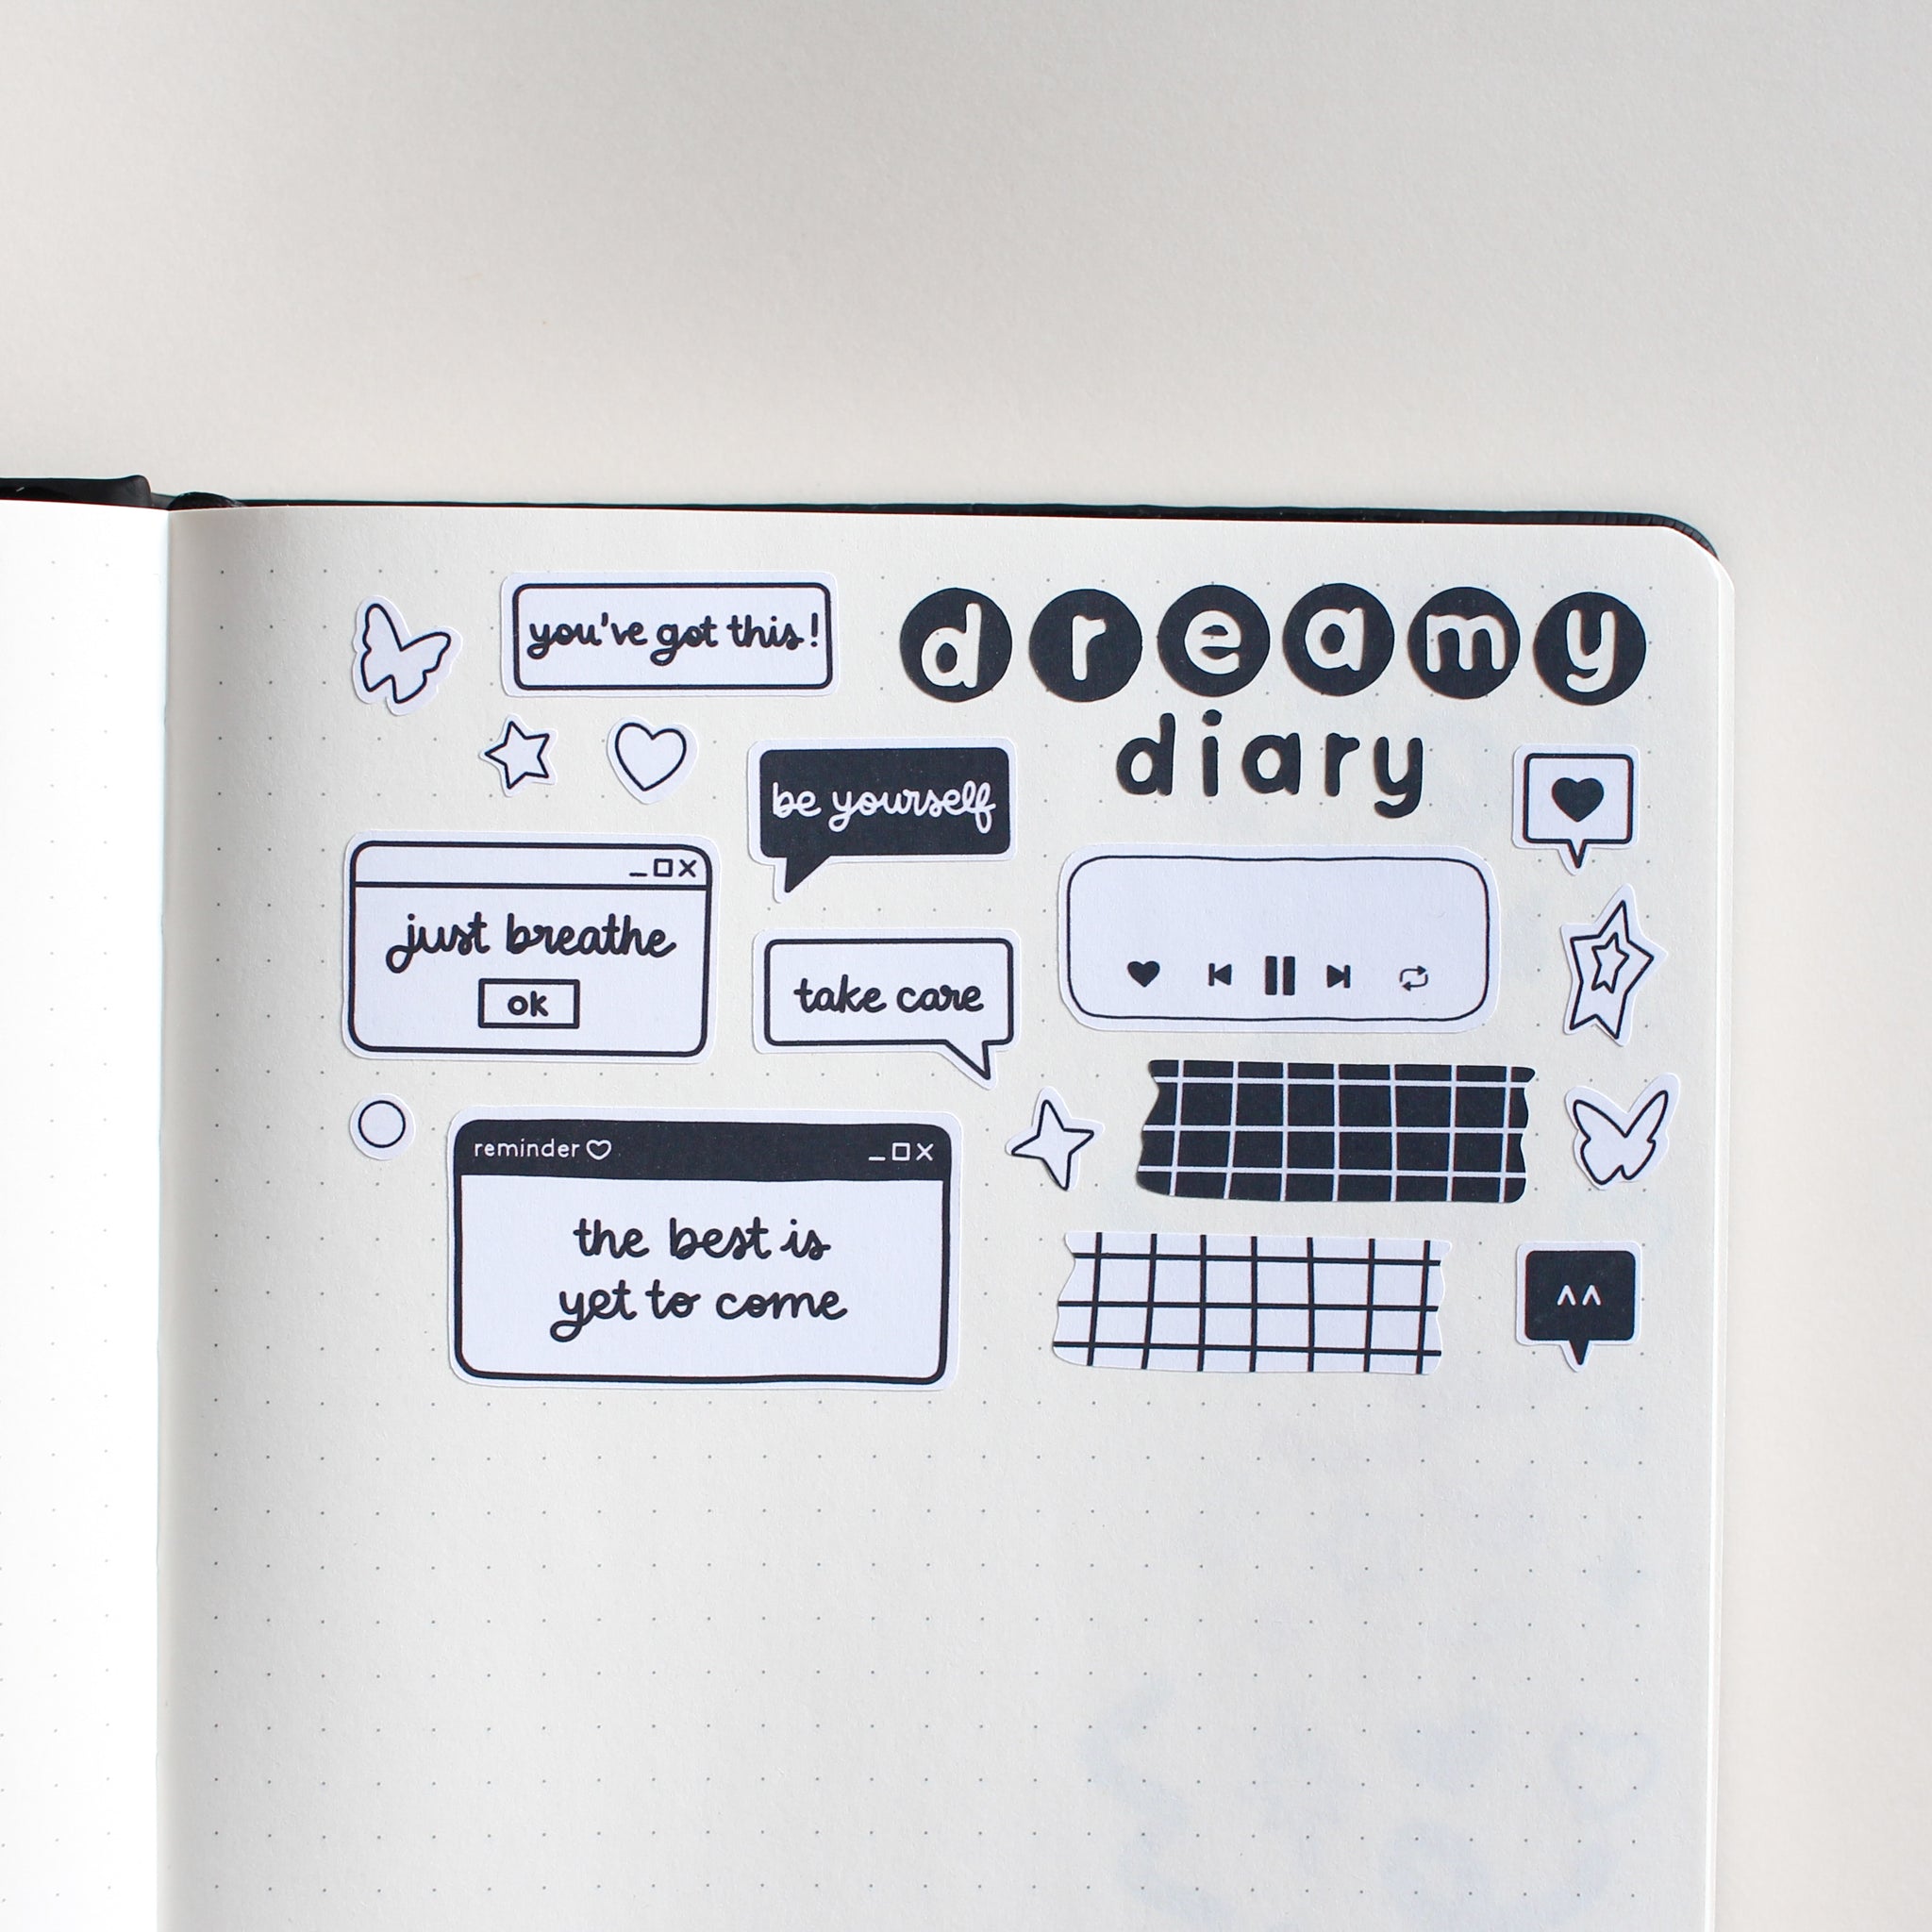 you've got this!
dreamy
diary
be yourself
just breathe
ok
take care
reminder
the best is
yet to come
^^